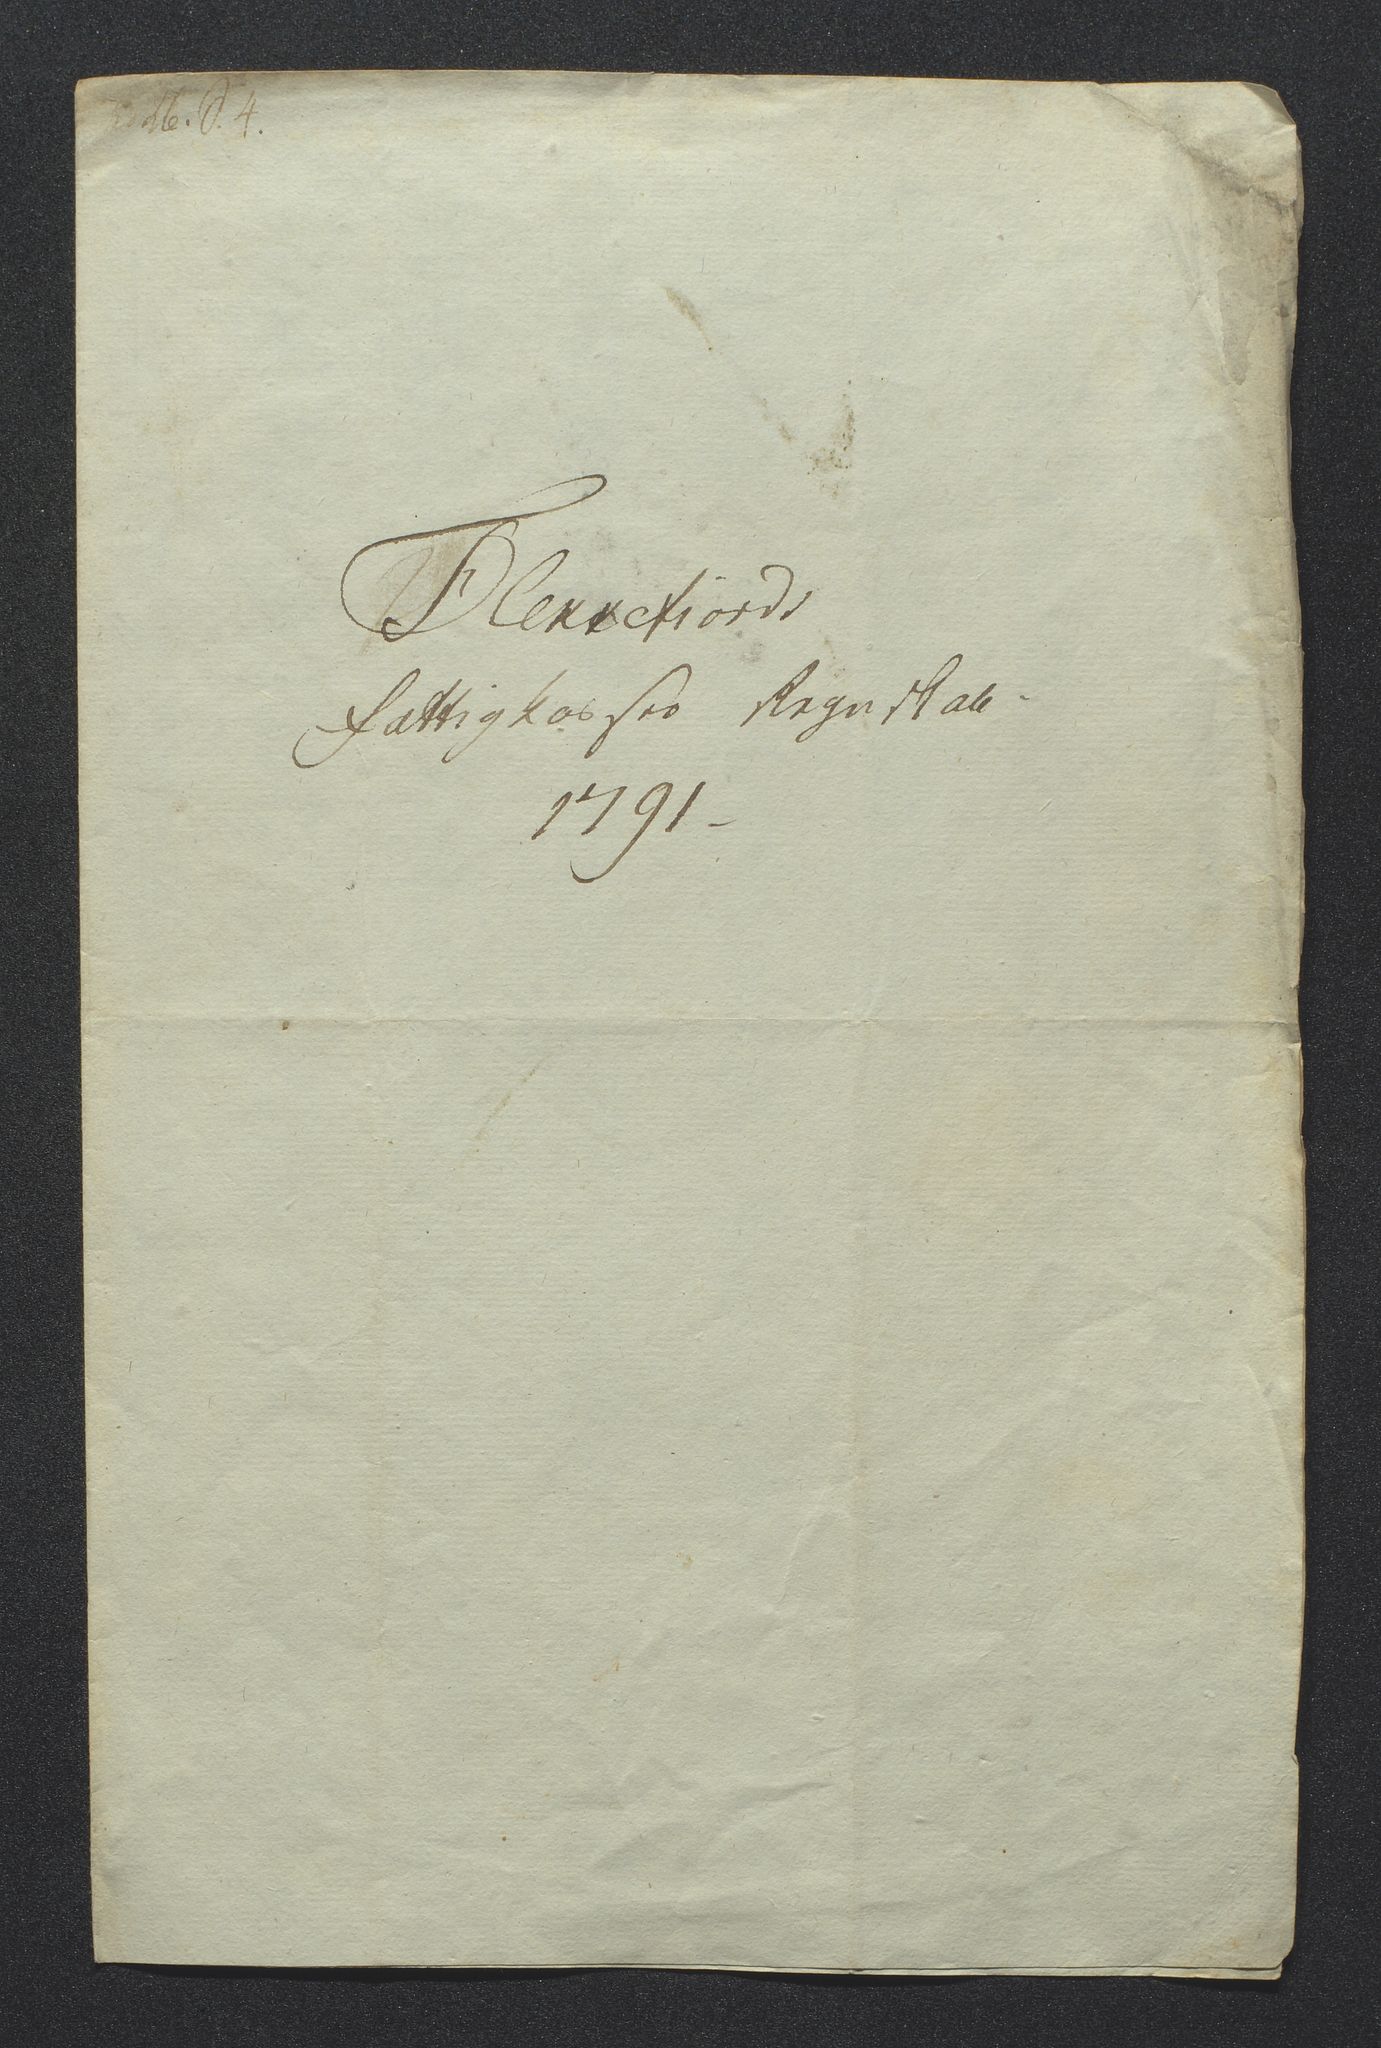 D. 4.
Flekkefiords
fattigkasses Regnskab
1791-